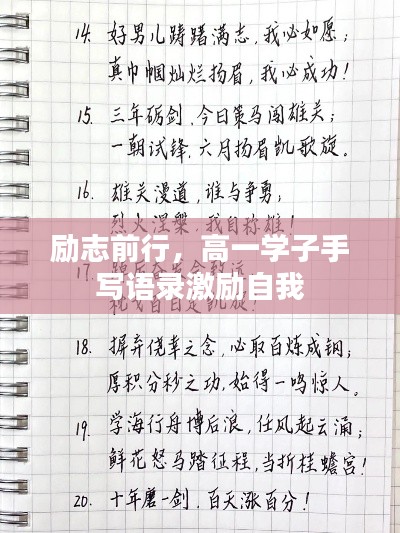 14. 好男儿踌躇满志,我必如愿;
真巾帼灿烂扬眉,我必成功!
15. 三年砺剑,今日策马闯雄关;
一朝试锋,六月扬眉凯歌旋。
16. 雄关漫道,谁与争勇,
烈火涅槃,我自称雄!
励志前行,高一学子手
写语录激励自我
17.
凯旋!
18. 摒弃侥幸之念,必取百炼成钢;
厚积分秒之功,始得一鸣惊人。
19. 学海行舟博后浪,任风起云涌;
鲜花怒马踏征程,当折桂蟾宫!
20. 十年磨一剑,百天涨百分!